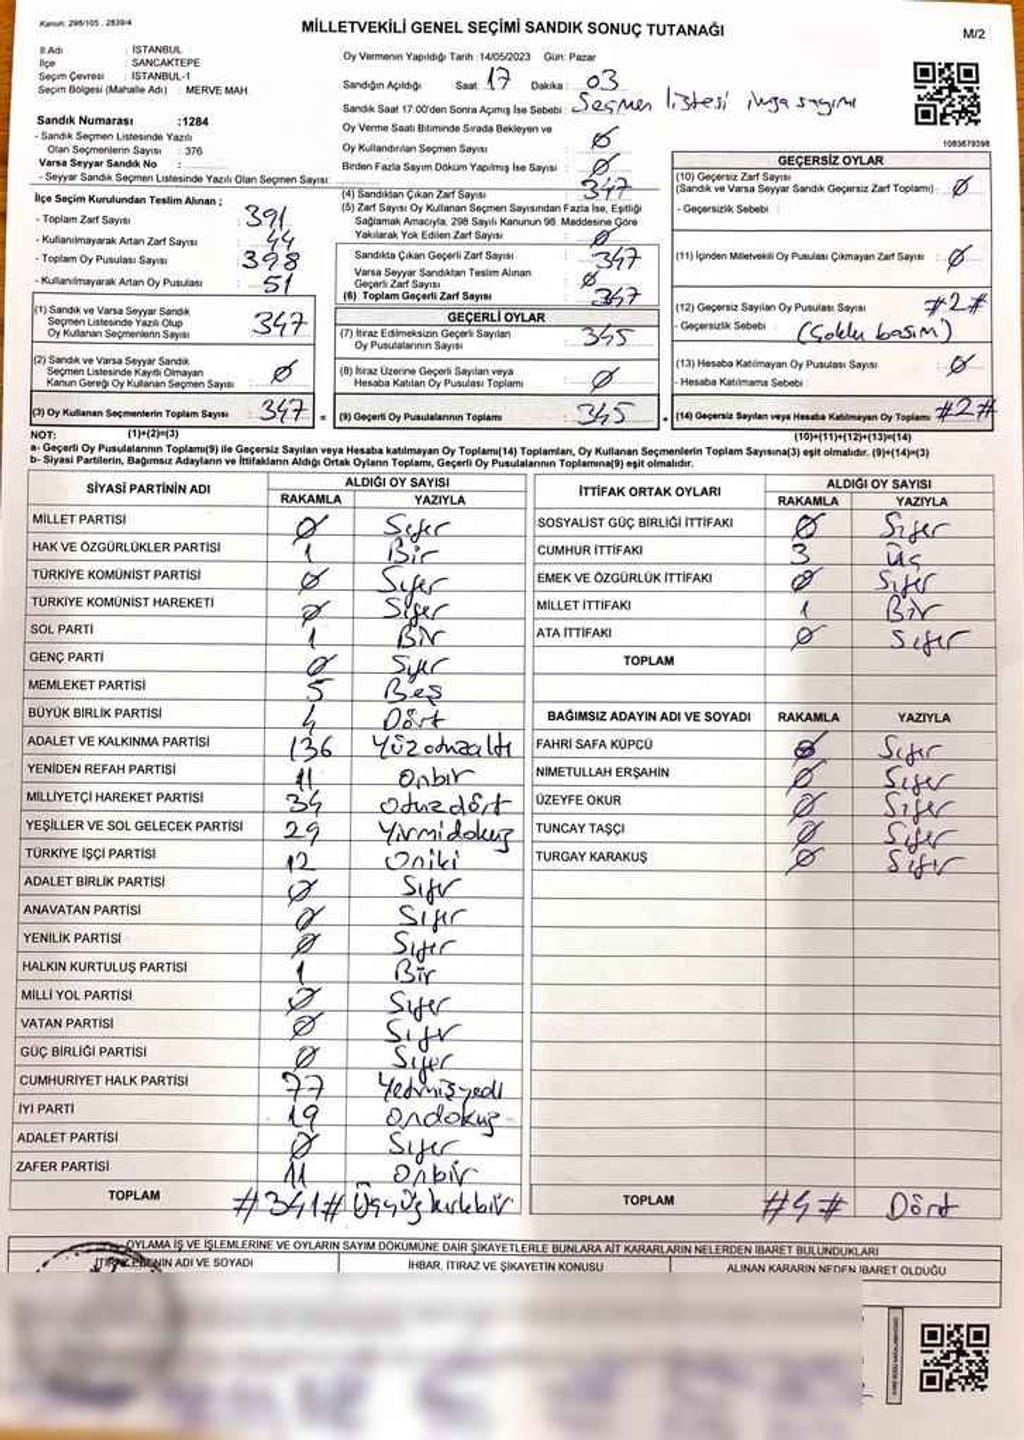 Kanun: 298/105 . 2839/4
MİLLETVEKİLİ GENEL SEÇİMİ SANDIK SONUÇ TUTANAĞI
M/2
İl Adı : İSTANBUL
İlçe : SANCAKTEPE
Seçim Çevresi : İSTANBUL-1
Seçim Bölgesi (Mahalle Adı) : MERVE MAH
Sandık Numarası :1284
- Sandık Seçmen Listesinde Yazılı
Olan Seçmenlerin Sayısı : 376
Varsa Seyyar Sandık No :
- Seyyar Sandık Seçmen Listesinde Yazılı Olan Seçmen Sayısı:
Oy Vermenin Yapıldığı Tarih :14/05/2023 Gün: Pazar
Sandığın Açıldığı Saat: 17 Dakika : 03
Sandık Saat 17:00'den Sonra Açımış İse Sebebi : Seçmen listesi imza sayımı
Oy Verme Saati Bitiminde Sırada Bekleyen ve
Oy Kullandırılan Seçmen Sayısı : Ø
Birden Fazla Sayım Döküm Yapılmış İse Sayısı : Ø
1083679398
İlçe Seçim Kurulundan Teslim Alınan ;
- Toplam Zarf Sayısı : 391
- Kullanılmayarak Artan Zarf Sayısı : 44
- Toplam Oy Pusulası Sayısı : 398
- Kullanılmayarak Artan Oy Pusulası : 51
(1) Sandık ve Varsa Seyyar Sandık
Seçmen Listesinde Yazılı Olup
Oy Kullanan Seçmenlerin Sayısı : 347
(2) Sandık ve Varsa Seyyar Sandık
Seçmen Listesinde Kayıtlı Olmayan
Kanun Gereği Oy Kullanan Seçmen Sayısı : Ø
(3) Oy Kullanan Seçmenlerin Toplam Sayısı : 347 =
(1)+(2)=(3)
(4) Sandıktan Çıkan Zarf Sayısı : 347
(5) Zarf Sayısı Oy Kullanan Seçmen Sayısından Fazla İse, Eşitliği
Sağlamak Amacıyla, 298 Sayılı Kanunun 98. Maddesine Göre
Yakılarak Yok Edilen Zarf Sayısı : Ø
Sandıkta Çıkan Geçerli Zarf Sayısı : 347
Varsa Seyyar Sandıktan Teslim Alınan
Geçerli Zarf Sayısı : Ø
(6) Toplam Geçerli Zarf Sayısı : 347
GEÇERLİ OYLAR
(7) İtiraz Edilmeksizin Geçerli Sayılan
Oy Pusulalarının Sayısı : 345
(8) İtiraz Üzerine Geçerli Sayılan veya
Hesaba Katılan Oy Pusulası Toplamı : Ø
(9) Geçerli Oy Pusulalarının Toplamı : 345 +
GEÇERSİZ OYLAR
(10) Geçersiz Zarf Sayısı
(Sandık ve Varsa Seyyar Sandık Geçersiz Zarf Toplamı) : Ø
- Geçersizlik Sebebi :
(11) İçinden Milletvekili Oy Pusulası Çıkmayan Zarf Sayısı : Ø
(12) Geçersiz Sayılan Oy Pusulası Sayısı : #2#
- Geçersizlik Sebebi : (Çoklu basım)
(13) Hesaba Katılmayan Oy Pusulası Sayısı : Ø
- Hesaba Katılmama Sebebi :
(14) Geçersiz Sayılan veya Hesaba Katılmayan Oy Toplamı : #2#
(10)+(11)+(12)+(13)=(14)
NOT:
a- Geçerli Oy Pusulalarının Toplamı(9) ile Geçersiz Sayılan veya Hesaba katılmayan Oy Toplamı(14) Toplamları, Oy Kullanan Seçmenlerin Toplam Sayısına(3) eşit olmalıdır. (9)+(14)=(3)
b- Siyasi Partilerin, Bağımsız Adayların ve İttifakların Aldığı Ortak Oyların Toplamı, Geçerli Oy Pusulalarının Toplamına(9) eşit olmalıdır.
SİYASİ PARTİNİN ADI ALDIĞI OY SAYISI
RAKAMLA YAZIYLA
MİLLET PARTİSİ Ø Sıfır
HAK VE ÖZGÜRLÜKLER PARTİSİ 1 Bir
TÜRKİYE KOMÜNİST PARTİSİ Ø Sıfır
TÜRKİYE KOMÜNİST HAREKETİ Ø Sıfır
SOL PARTİ 1 Bir
GENÇ PARTİ Ø Sıfır
MEMLEKET PARTİSİ 5 Beş
BÜYÜK BİRLİK PARTİSİ 4 Dört
ADALET VE KALKINMA PARTİSİ 136 Yüzotuzaltı
YENİDEN REFAH PARTİSİ 11 Onbir
MİLLİYETÇİ HAREKET PARTİSİ 34 Otuzdört
YEŞİLLER VE SOL GELECEK PARTİSİ 29 Yirmidokuz
TÜRKİYE İŞÇİ PARTİSİ 12 Oniki
ADALET BİRLİK PARTİSİ Ø Sıfır
ANAVATAN PARTİSİ Ø Sıfır
YENİLİK PARTİSİ Ø Sıfır
HALKIN KURTULUŞ PARTİSİ 1 Bir
MİLLİ YOL PARTİSİ Ø Sıfır
VATAN PARTİSİ Ø Sıfır
GÜÇ BİRLİĞİ PARTİSİ Ø Sıfır
CUMHURİYET HALK PARTİSİ 77 Yetmişyedi
İYİ PARTİ 19 Ondokuz
ADALET PARTİSİ Ø Sıfır
ZAFER PARTİSİ 11 Onbir
TOPLAM #341# Üçyüzkırkbir
İTTİFAK ORTAK OYLARI ALDIĞI OY SAYISI
RAKAMLA YAZIYLA
SOSYALİST GÜÇ BİRLİĞİ İTTİFAKI Ø Sıfır
CUMHUR İTTİFAKI 3 Üç
EMEK VE ÖZGÜRLÜK İTTİFAKI Ø Sıfır
MİLLET İTTİFAKI 1 Bir
ATA İTTİFAKI Ø Sıfır
TOPLAM
BAĞIMSIZ ADAYIN ADI VE SOYADI RAKAMLA YAZIYLA
FAHRİ SAFA KÜPCÜ Ø Sıfır
NİMETULLAH ERŞAHİN Ø Sıfır
ÜZEYFE OKUR Ø Sıfır
TUNCAY TAŞÇI Ø Sıfır
TURGAY KARAKUŞ Ø Sıfır
TOPLAM #4# Dört
OYLAMA İŞ VE İŞLEMLERİNE VE OYLARIN SAYIM DÖKÜMÜNE DAİR ŞİKAYETLERLE BUNLARA AİT KARARLARIN NELERDEN İBARET BULUNDUKLARI
İTİRAZ EDENİN ADI VE SOYADI İHBAR, İTİRAZ VE ŞİKAYETİN KONUSU ALINAN KARARIN NEDEN İBARET OLDUĞU